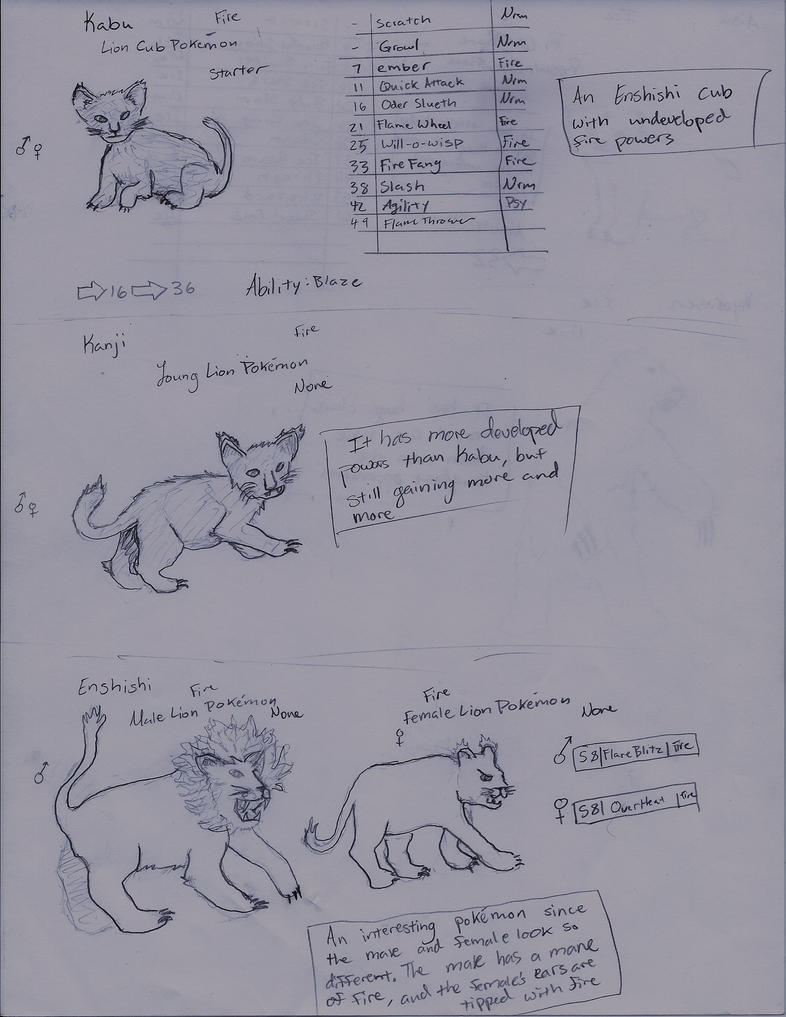 Kabu Fire
Lion Cub Pokémon
Starter
- Scratch Nrm
- Growl Nrm
7 ember Fire
11 Quick Attack Nrm
16 Oder Slueth Nrm
21 Flame Wheel Fire
25 Will-o-wisp Fire
33 Fire Fang Fire
38 Slash Nrm
42 Agility Psy
49 Flame Thrower
An Enshishi cub
with undeveloped
fire powers
♂♀
⇨16⇨36 Ability: Blaze
Kanji Fire
Young Lion Pokémon
None
♂♀
It has more developed
powers than Kabu, but
still gaining more and
more
Enshishi Fire
Male Lion Pokémon None
♂
Fire
Female Lion Pokémon None
♀
♂ 58 Flare Blitz Fire
♀ 58 OverHeat Fire
An interesting pokémon since
the male and female look so
different. The male has a mane
of fire, and the female's ears are
tipped with fire